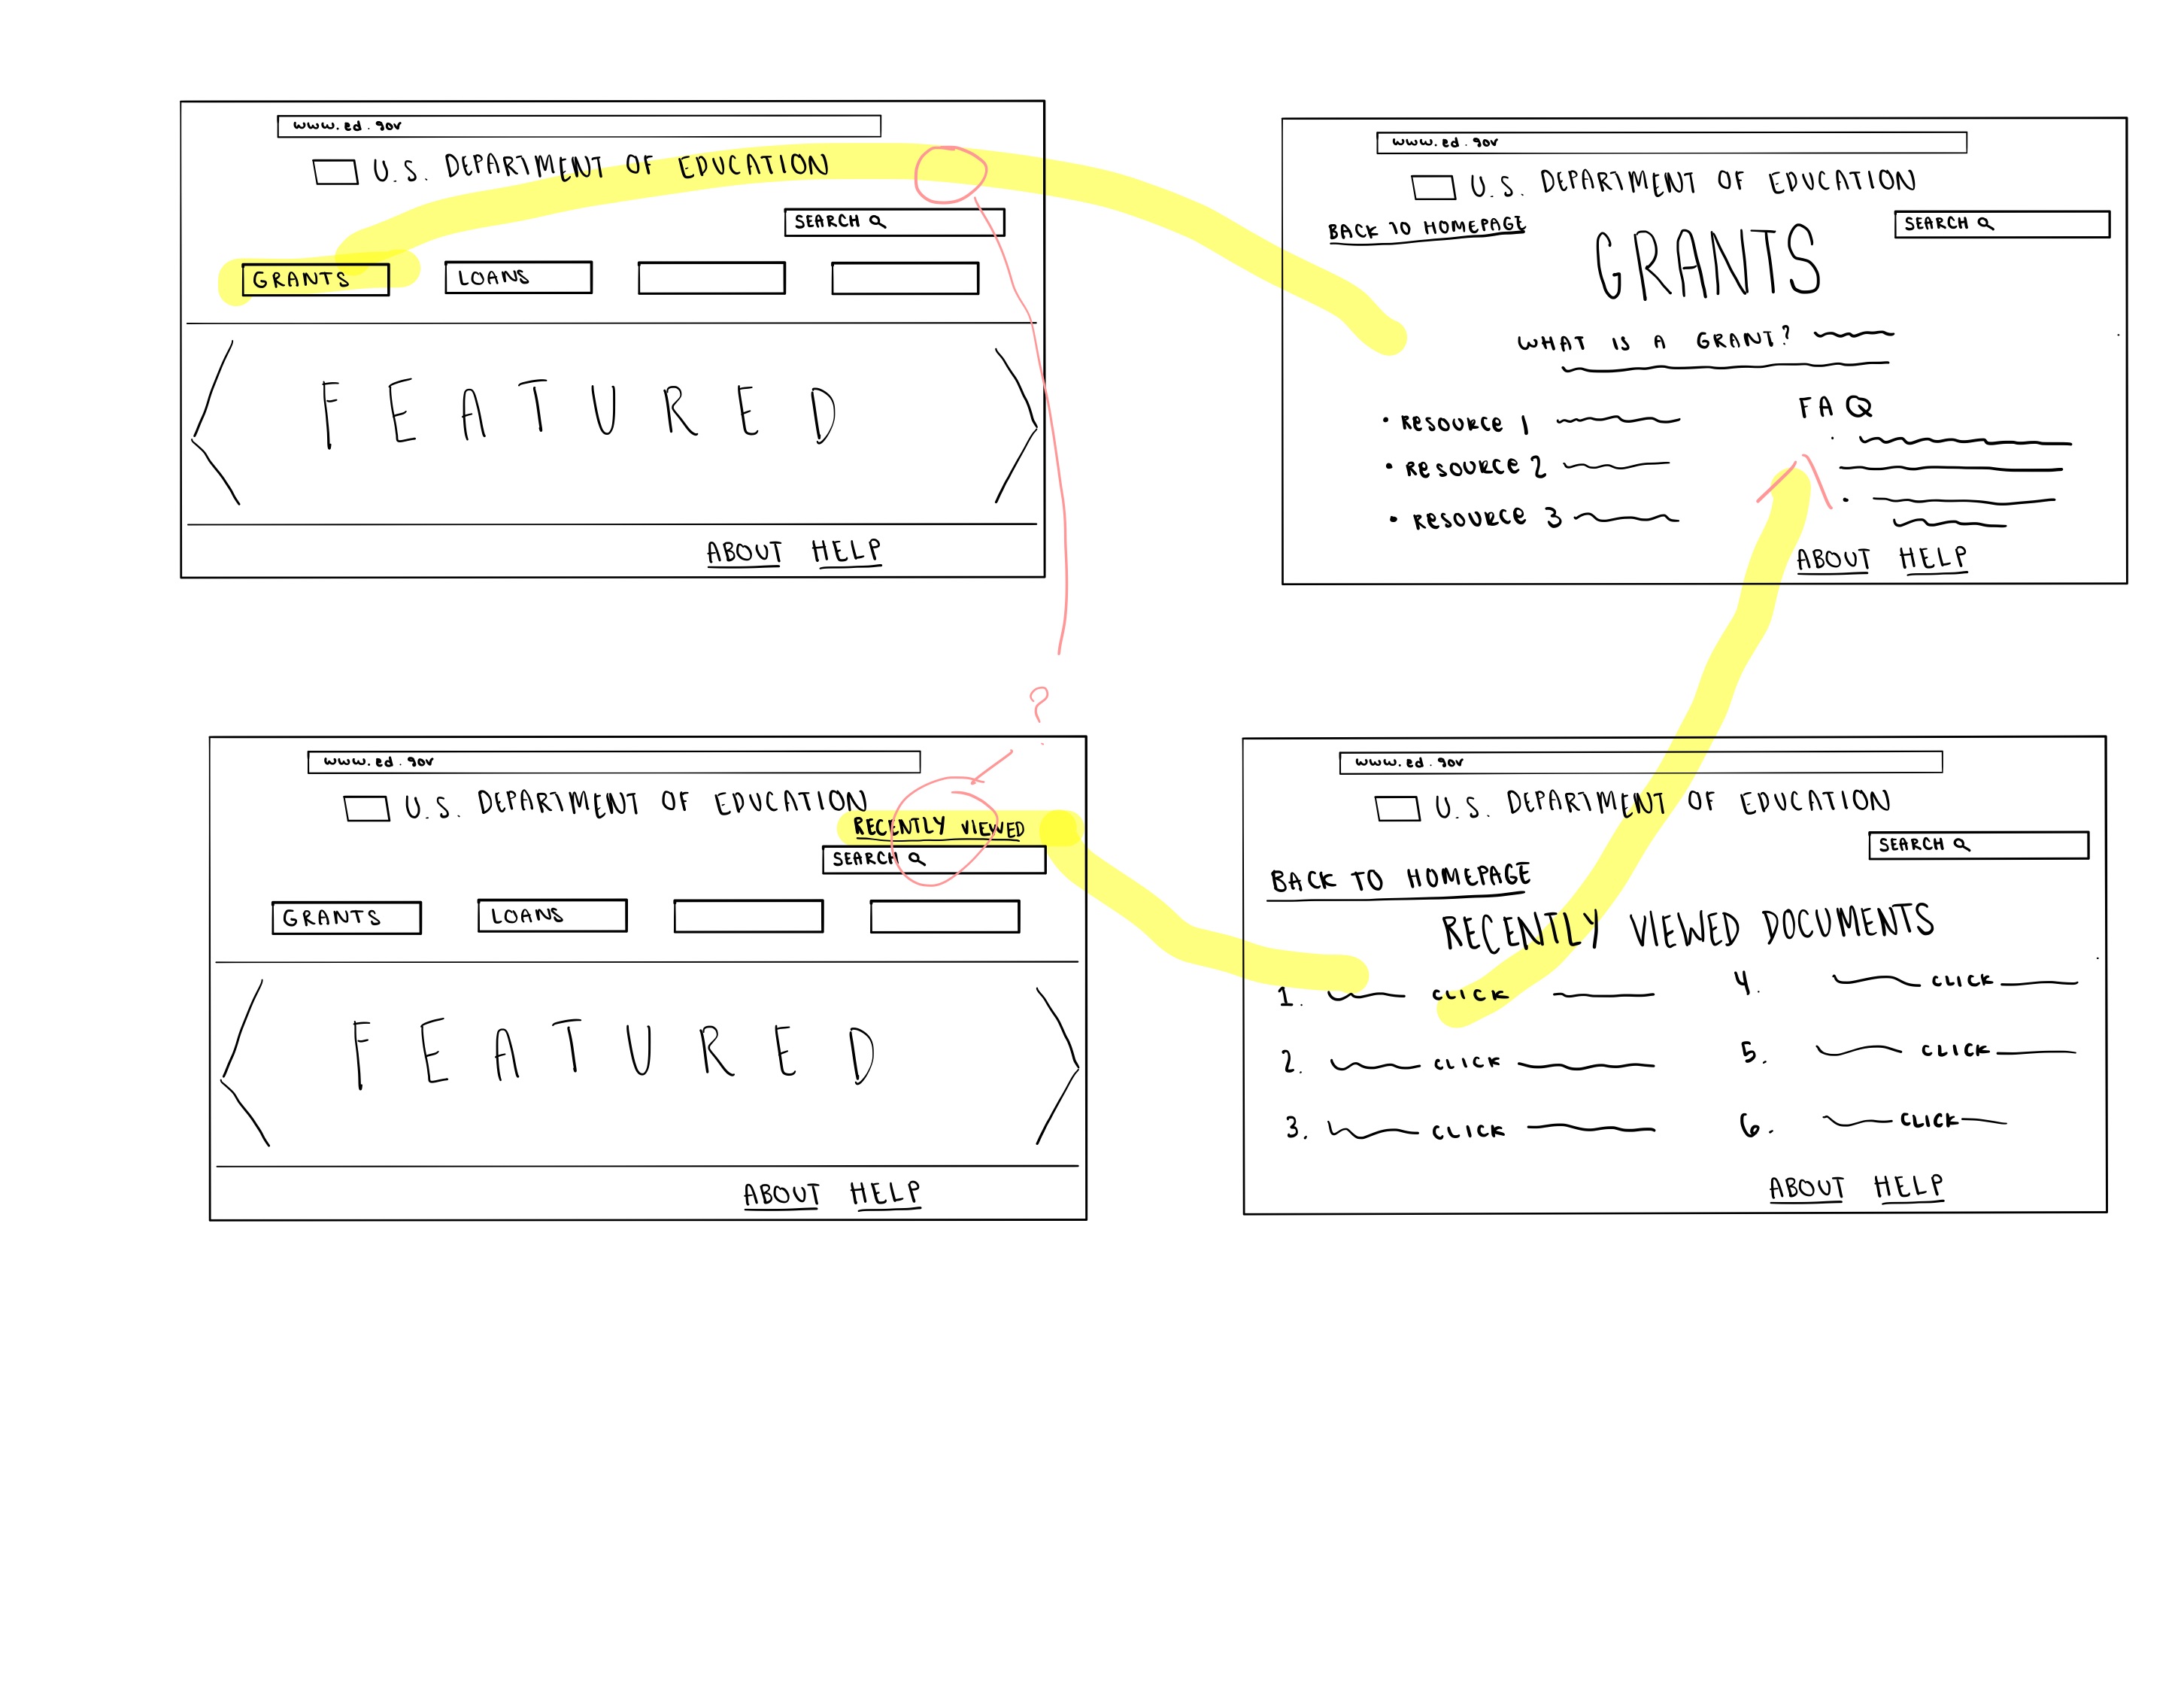 www.ed.gov
U.S. DEPARTMENT OF EDUCATION
SEARCH
GRANTS LOANS
FEATURED
ABOUT HELP
www.ed.gov
U.S. DEPARTMENT OF EDUCATION
BACK TO HOMEPAGE
SEARCH
GRANTS
WHAT IS A GRANT?
FAQ
• RESOURCE 1
• RESOURCE 2
• RESOURCE 3
ABOUT HELP
?
www.ed.gov
U.S. DEPARTMENT OF EDUCATION
RECENTLY VIEWED
SEARCH
GRANTS LOANS
FEATURED
ABOUT HELP
www.ed.gov
U.S. DEPARTMENT OF EDUCATION
SEARCH
BACK TO HOMEPAGE
RECENTLY VIEWED DOCUMENTS
1. CLICK
2. CLICK
3. CLICK
4. CLICK
5. CLICK
6. CLICK
ABOUT HELP